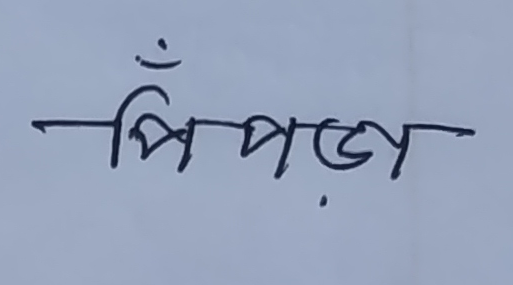 পিঁপড়া